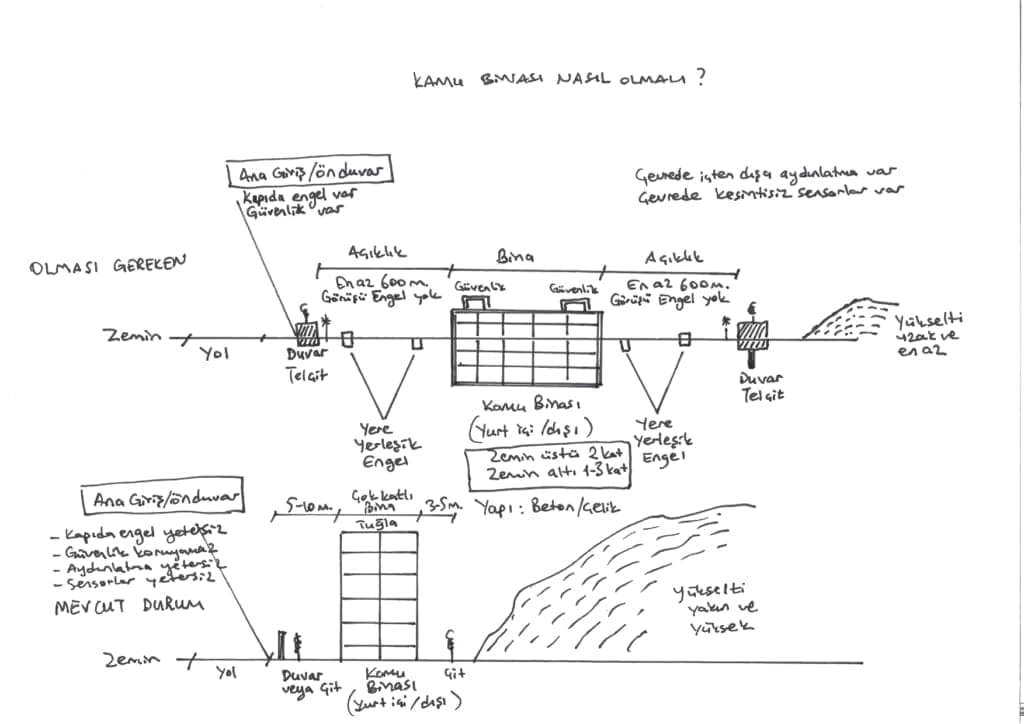 KAMU BİNASI NASIL OLMALI ?
Ana Giriş/önduvar
Kapıda engel var
Güvenlik var
Çevrede içten dışa aydınlatma var
Çevrede kesintisiz sensorlar var
OLMASI GEREKEN
Açıklık
Bina
Açıklık
En az 600 m.
Görüşü Engel yok
Güvenlik
Güvenlik
En az 600 m.
Görüşü Engel yok
Zemin
Yol
Duvar
Telçit
Duvar
Telçit
Yükselti
uzak ve
en az
Yere
Yerleşik
Engel
Kamu Binası
(Yurt içi/dışı)
Zemin üstü 2 kat
Zemin altı 1-3 kat
Yere
Yerleşik
Engel
Yapı: Beton/Çelik
Ana Giriş/önduvar
- Kapıda engel yetersiz
- Güvenlik koruyamaz
- Aydınlatma yetersiz
- Sensorlar yetersiz
MEVCUT DURUM
5-10 m.
Çok katlı
bina
3-5 m.
Tuğla
Yükselti
yakın ve
yüksek
Zemin
Yol
Duvar
veya Çit
Kamu
Binası
(Yurt içi/dışı)
Çit